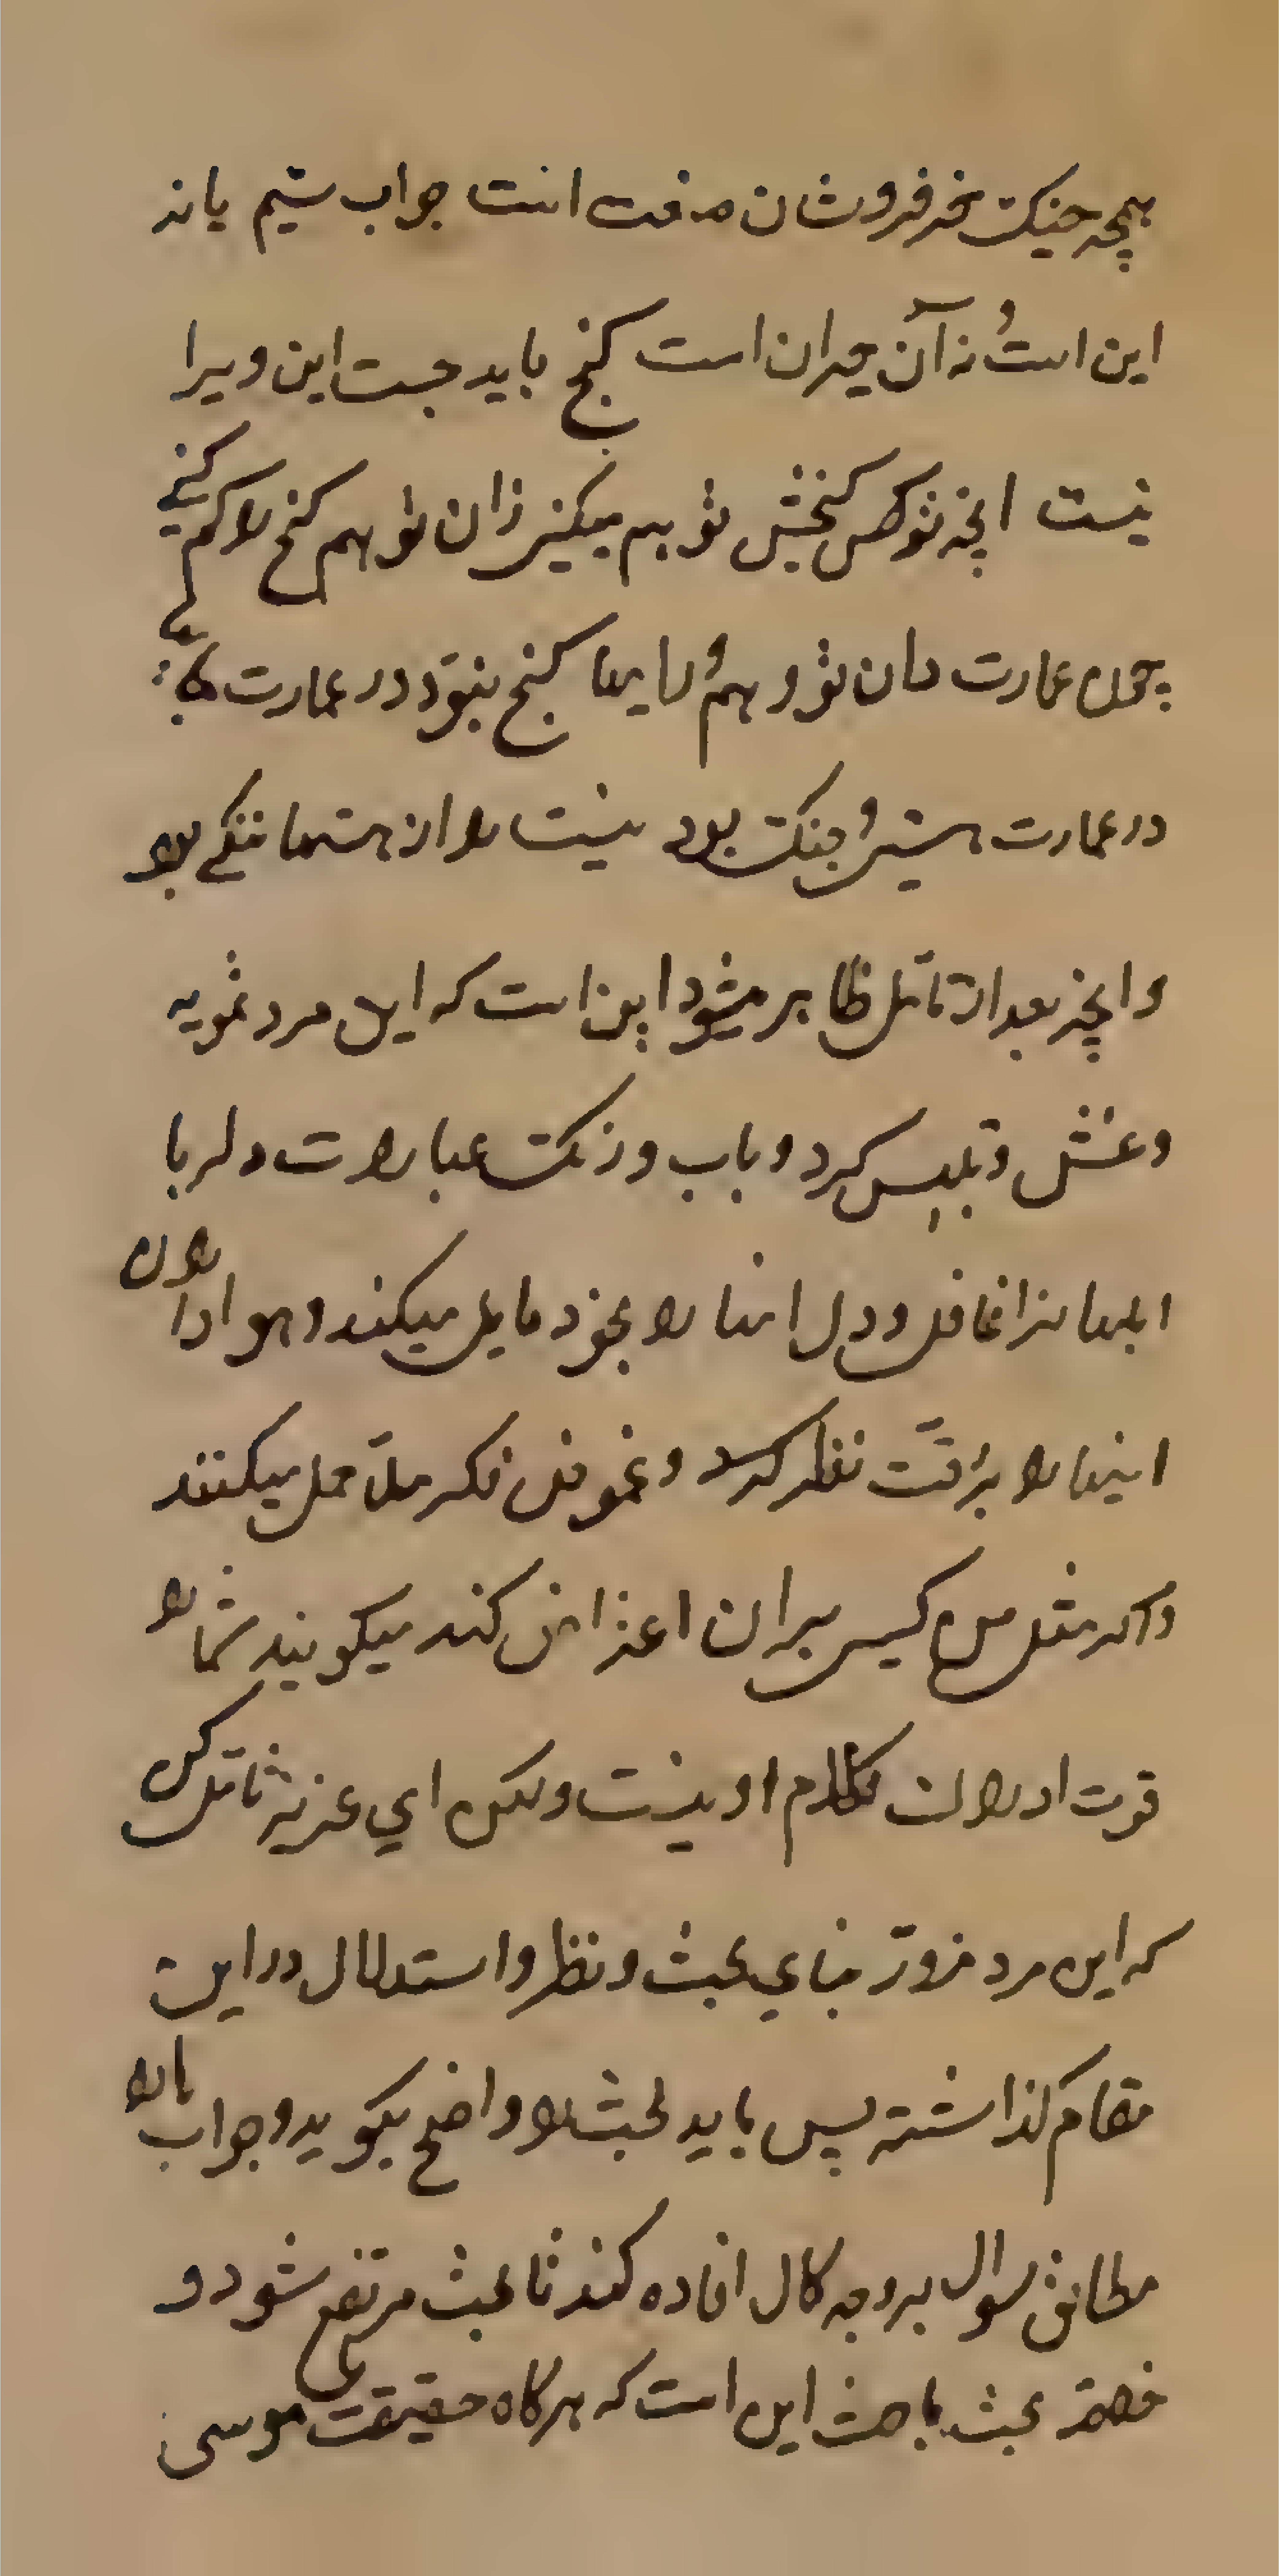 همچه جنک خر فروشان صنعت است جواب شیم یا نه
این است و نه آن حیران است کنج باید جست این ویرا
نیست آنچه تو کنجش توهم میکنی زان توهم کنج را کم کنی
چون عمارت دان تو وهم و رایها کنج نبود در عمارت جایها
در عمارت هستی و جنک بود نیست را از هستها ننکی بود
و آنچه بعد از تامّل ظاهر میشود این است که این مرد تمویه
و غش و تلبیس کرد و باب و رنک عبارات دلربا
ابلهانرا غافل و دل انها را بخود مایل میکند و هواداران
اینها را بدقّت نظر کرد و غموض فکر ملّا حمل میکنند
و اکر مثل من کسی بر ان اعتراض کند میکویند شما را
قوت ادراک کلام او نیست ولکن ای عزیز تامّل کن
که این مرد مزوّر بنای بحث و نظر و استدلال در این
مقام کذاشته پس باید بحث را واضح بکوید و جواب را
مطابق سوال بر وجه کمال افاده کند تا بحث مرتفع شود و
خلاصه بحث باحث این است که هرکاه حقیقت موسی